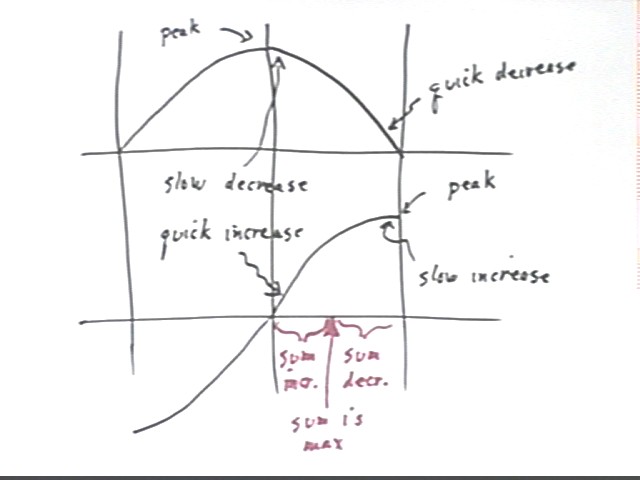 peak
quick decrease
slow decrease
peak
quick increase
slow increase
sum
incr.
sum
decr.
sum is
max